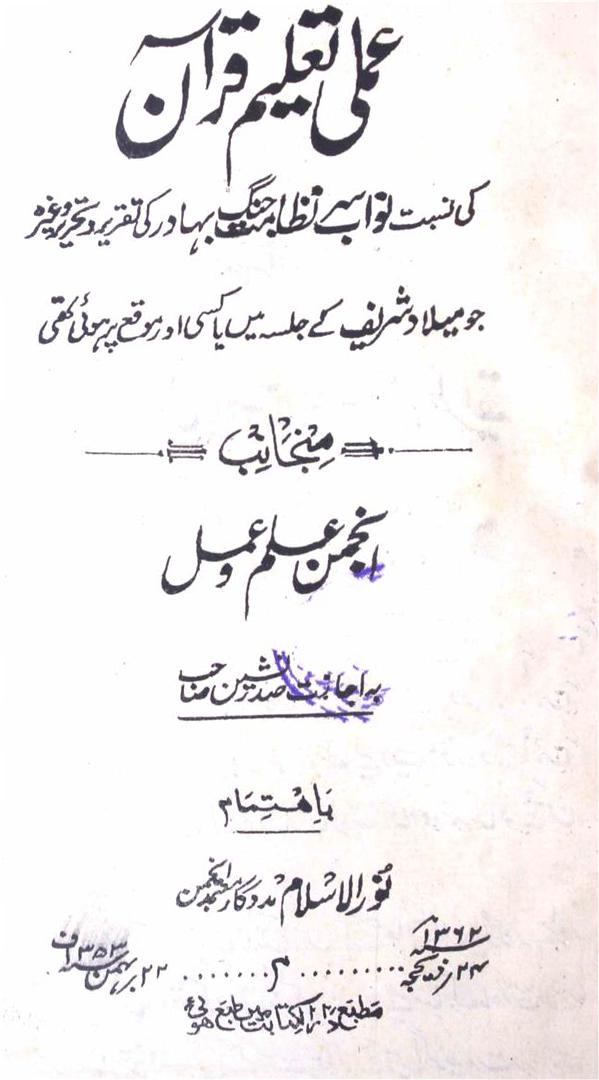 عملی تعلیم قرآن
کی نسبت نواب سر نظامت جنگ بہادر کی تقریر و تحریر وغیرہ
جو میلاد شریف کے جلسہ میں یا کسی اور موقع پر ہوئی تھی
منجانب
انجمن علم و عمل
بہ اجازت صدر نشین صاحب
باہتمام
نور الاسلام مددگار معتمد انجمن
۲۴ ذیقعدہ ۱۳۶۲ م ۲۲ بہمن ۱۳۵۳
مطبع میں طبع ہوئی